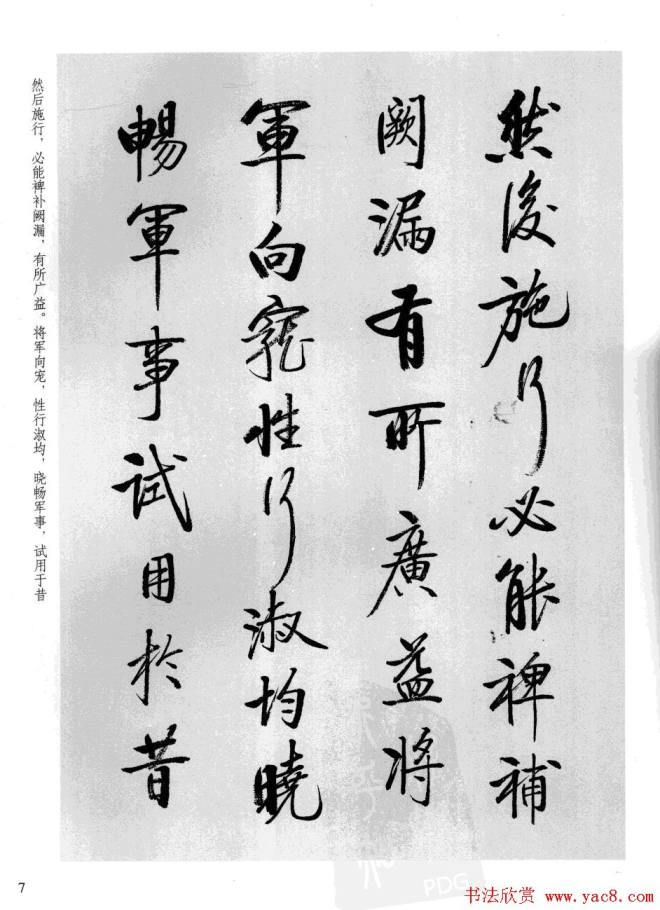 然後施行必能裨補
闕漏有所廣益將
軍向寵性行淑均曉
暢軍事試用於昔
然后施行，必能裨补阙漏，有所广益。将军向宠，性行淑均，晓畅军事，试用于昔
7
PDG
书法欣赏 www.yac8.com